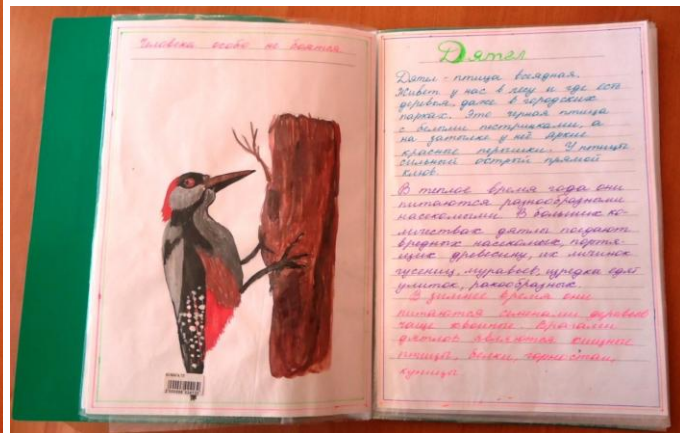 Человека особо не боятся
Дятел
Дятел - птица всеядная.
Живет у нас в лесу и где есть
деревья, даже в городских
парках. Это черная птица
с белыми пестринками, а
на затылке у неё яркие
красные перышки. У птицы
сильный острый прямой
клюв.
В теплое время года они
питаются разнообразными
насекомыми. В больших ко-
личествах дятлы поедают
вредных насекомых, портя-
щих древесину, их личинок
гусениц, муравьев, изредка едят
улиток, ракообразных.
В зимнее время они
питаются семенами деревьев
чаще хвойные. Врагами
дятлов являются хищные
птицы, белки, горностаи,
куницы